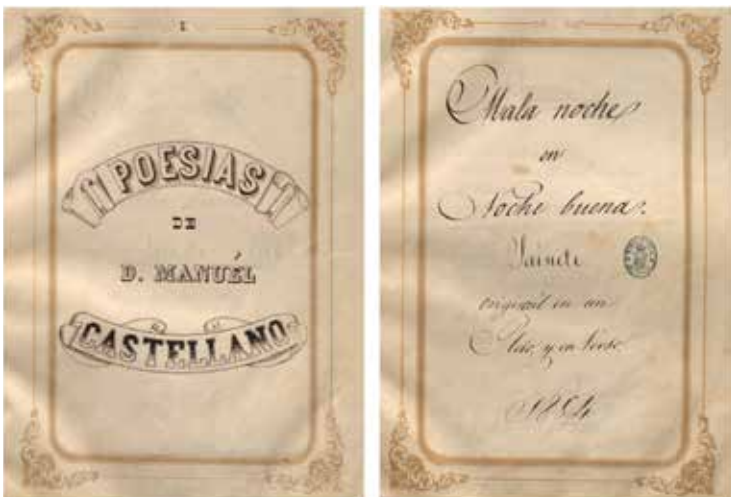 POESIAS
DE
D. MANUÉL
CASTELLANO
Mala noche
en
Noche buena.
Sainete
original en un
Acto, y en Verso.
1854